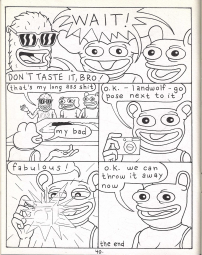 WAIT!
DON'T TASTE IT, BRO!
that's my long ass shit
my bad
o.k. - landwolf - go
pose next to it
fabulous!
o.k. we can
throw it away
now
the end